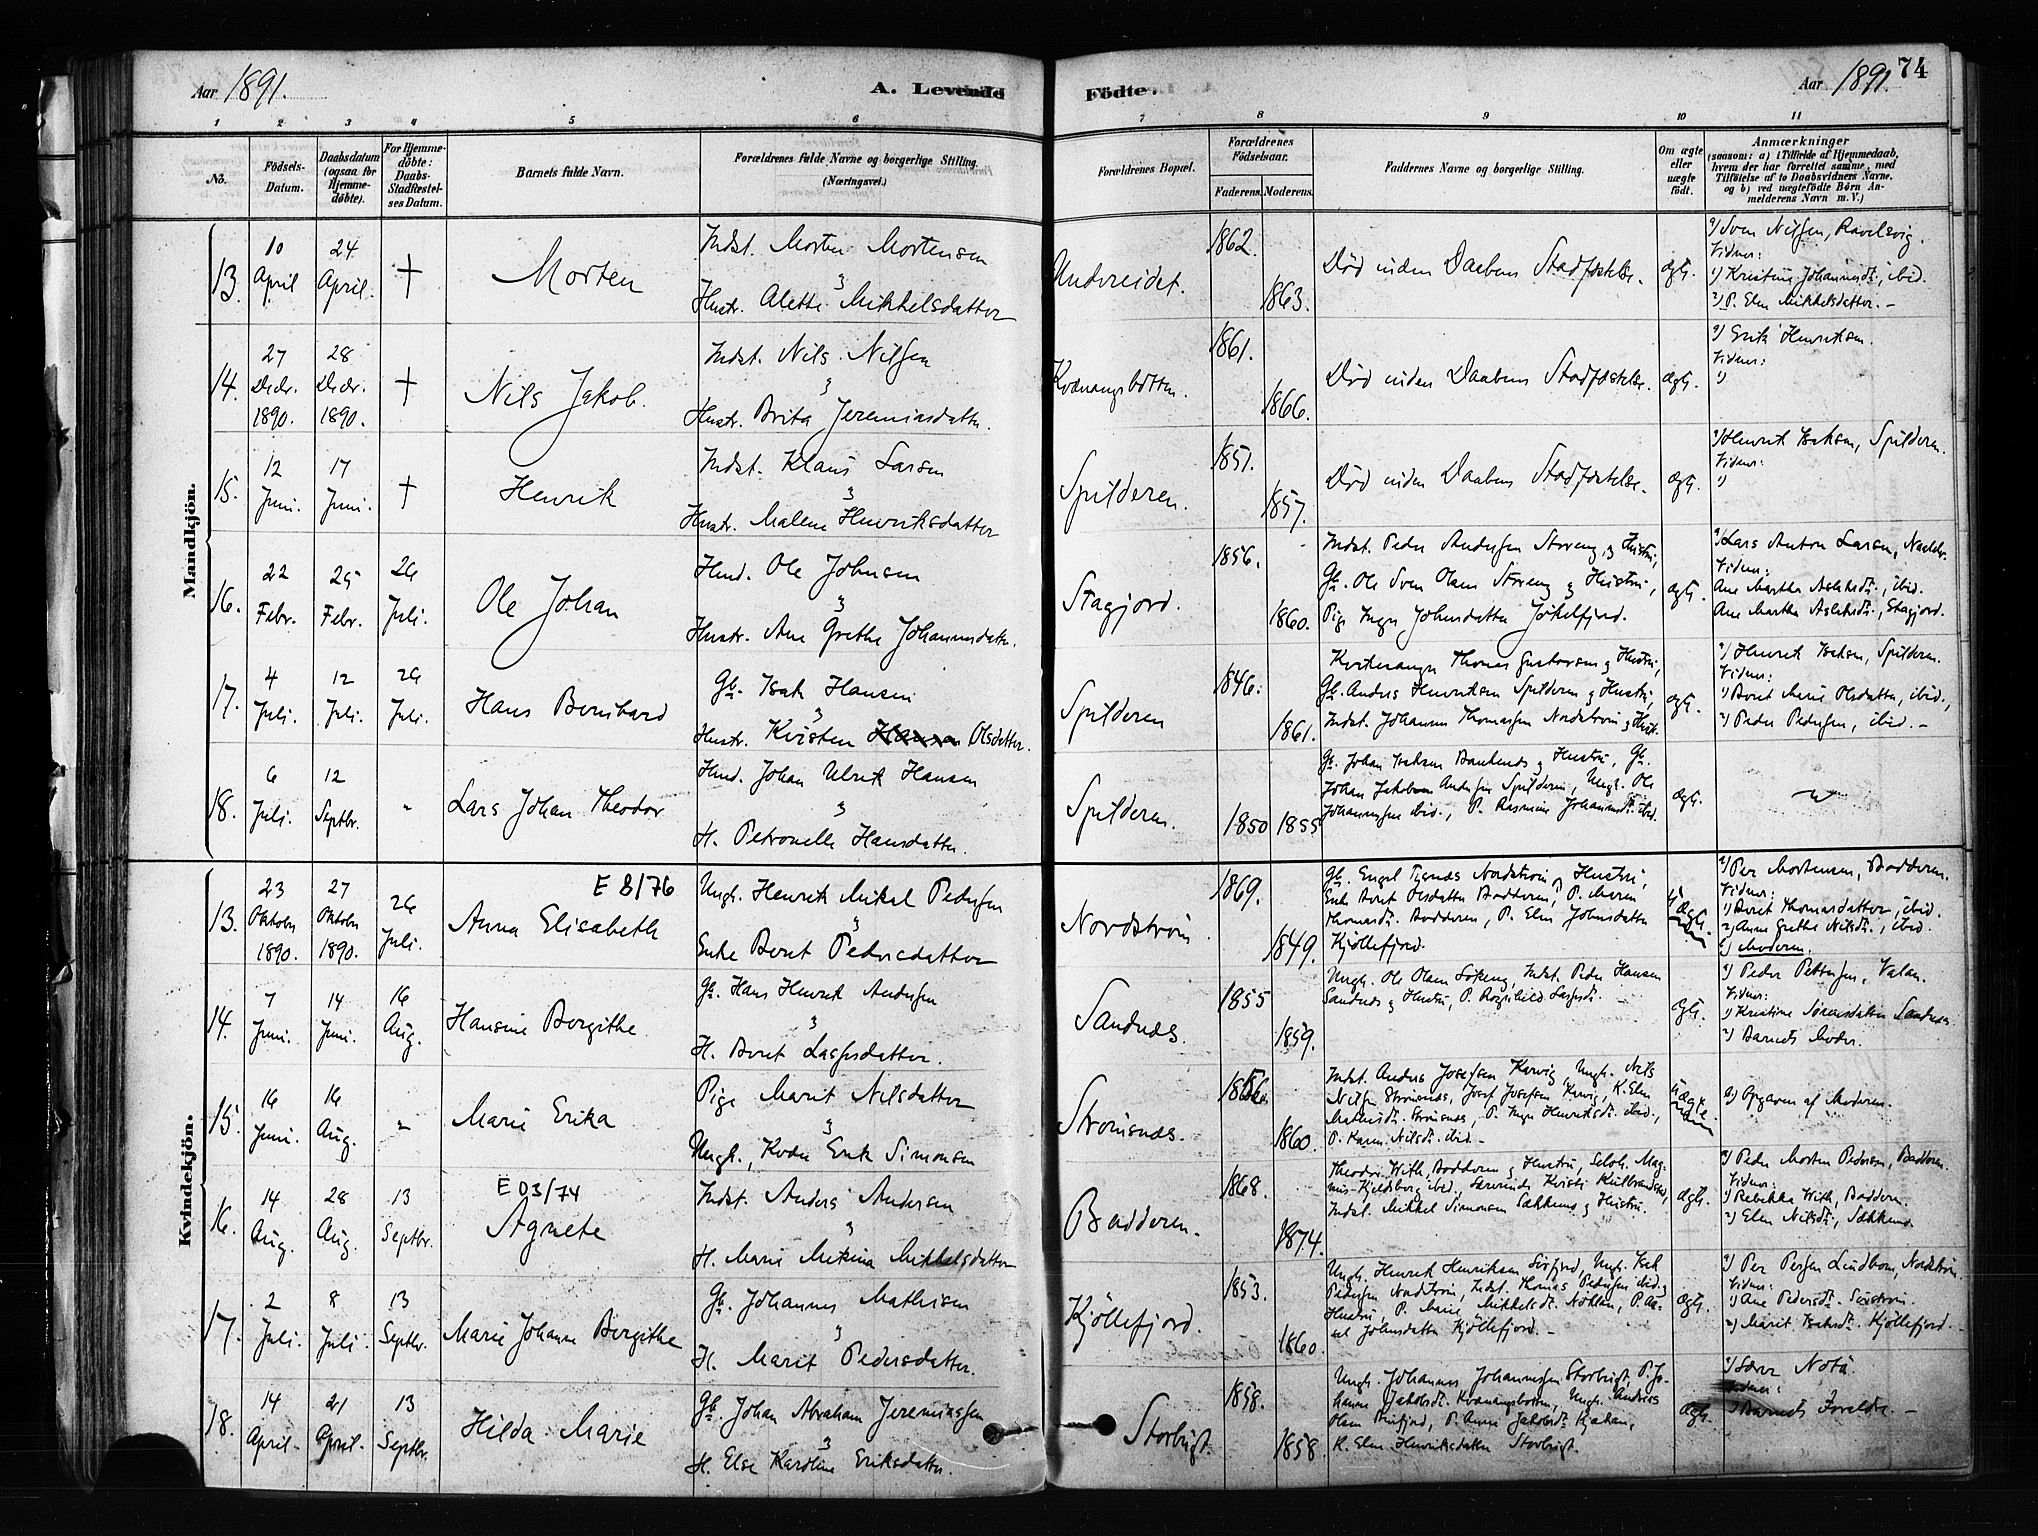 Aar 1891.
A. Levende
Födte.
Aar 1891.
74
1 2 3 4 5 6 7 8 9 10 11
No.
Födsels-
Datum.
Daabsdatum
(ogsaa for
Hjemme-
döbte).
For Hjemme-
döbte:
Daabs-
Stadfæstel-
ses Datum.
Barnets fulde Navn.
Forældrenes fulde Navne og borgerlige Stilling.
(Næringsvei.)
Forældrenes Bopæl.
Forældrenes
Födselsaar.
Faderens. Moderens.
Faddernes Navne og borgerlige Stilling.
Om ægte
eller
uægte
födt.
Anmærkninger
(saasom: a) i Tilfælde af Hjemmedaab,
hvem der har forrettet samme, med
Tilföielse af to Daabsvidners Navne,
og b) ved uægtefödte Börn An-
melderens Navn m. V.)
Mandkjön.
13.
10
April
24
April.
†
Morten
Indst. Morten Mortensen
Hustr. Alette Mikkelsdatter
Undereidet.
1862.
1863.
Död inden Daabens Stadfæstelse.
ægt.
Sven Nilsen,
Vidner:
1) Kristine Johannesd., ibid.
2) P. Elen Mikkelsdatter. -
14.
27
Decbr.
1890.
28
Decbr.
1890.
†
Nils Jakob.
Indst. Nils Nilsen
Hustr. Brita Jeremiasdatter.
Kvænangsbotten.
1861.
1866.
Död inden Daabens Stadfæstelse.
ægt.
Erik Henriksen.
Vidner:
1)
15.
12
Juni.
17
Juni.
†
Henrik
Indst. Klaus Larsen
Hustr. Malene Henriksdatter
Spilderen.
1851.
1857.
Död inden Daabens Stadfæstelse.
ægt.
Henrik Isaksen, Spilderen.
Vidner:
1)
16.
22
Febr.
25
Febr.
26
Juli.
Ole Johan
Ole Johnsen
Hustr. Ane Grethe Johannesdatter.
Stagjord.
1856.
1860.
Indst. Peder Andersen Storeng og Hustru,
Gb. Ole Sven Olsen Storeng og Hustru,
Pige Inger Johnsdatter Jökelfjord.
ægt.
Lars Anton Larsen,
Vidner:
Ane Martha Aslaksd., ibid.
Ane Martha Aslaksd., Stagjord.
17.
4
Juli.
12
Juli.
26
Juli.
Hans Bernhard
Gb. Isak Hansen
Hustr. Kristen Olsdatter.
Spilderen
1846.
1861.
Thomas Gustavsen og Hustru,
Gb. Anders Henriksen Spilderen og Hustru,
Indst. Johannes Thomassen Nordström og Hustr.
ægt.
Henrik Isaksen, Spilderen.
Vidner:
1) Beret Marie Olsdatter, ibid.,
2) Peder Pedersen, ibid. -
18.
6
Juli.
12
Septbr.
-
Lars Johan Theodor
Johan Ulrik Hansen
H. Petronelle Hansdatter.
Spilderen.
1850
1855
Gb. Johan Isaksen og Hustru, Gb.
Johan Jakobsen Spilderen, Ungk. Ole
Johannessen ibid., P. Rasmine Johannesd. ibid.
ægt.
Kvindekjön.
13.
23
Oktober
1890.
27
Oktober
1890.
26
Juli.
E 8/76
Anna Elisabeth
Ungk. Henrik Mikal Pedersen
Enke Beret Pedersdatter
Nordström
1869.
1849.
Gb. Engel Nordström og Hustru,
Enke Beret Olsdatter Badderen, P. Maren
Thomasd. Badderen, P. Elen Johnsdatter
Kjöllefjord.
uægt.
Per Mortensen, Badderen.
Vidner:
1) Beret Thomasdatter, ibid.
2) Anne Grethe Nilsd., ibid.
Moderen.
14.
7
Juni.
14
Juni.
16
Aug.
Hansine Bergithe
Gb. Hans Henrik Andersen
H. Beret Lassesdatter.
Sandnes.
1855
1859.
Ungk. Ole Olsen Indst. Peder Hansen
Sandnes og Hustru, P. Lassesd.
ægt.
Peder Pettersen, Valan.
Vidner:
1) Kristine Sandnes
2) Barnets Moder.
15.
16
Juni.
16
Aug.
-
Marie Erika
Pige Marit Nilsdatter
Ungk., Erik Simonsen
Strömsnes.
1860.
Indst. Anders Josefsen Kjerving, Ungk. Nils
Nilsen Strömsnes, Josef Josefsen K. Elen
Strömsnes, P. Inger Henriksd. ibid.,
P. Karen Nilsd. ibid -
uægte.
Opgaven af Moderen.
16.
14
Aug.
28
Aug.
13
Septbr.
E 03/74
Agnete
Indst. Anders Andersen
H. Marie Mikkelsdatter
Badderen.
1868.
1874.
Theodor With, Badderen og Hustru, Mag-
nus Kjeldsberg, ibid.
Indst. Mikkel Simonsen Sækkemo og Hustru.
ægt.
Peder Morten Pedersen, Badderen.
Vidner:
1) Rebekka With, Badderen
2) Elen Nilsd., Sækkemo
17.
2
Juli.
8
Juli.
13
Septbr.
Marie Johanne Bergithe
Gb. Johannes Mathisen
H. Marit Pedersdatter.
Kjöllefjord.
1853.
1860.
Ungk. Henrik Henriksen Sörfjord, Ungk. Isak
Pedersen Nordström, Indst. Thomas Pedersen ibid og
Hustru, P. Marie Mikkelsd.
Johnsdatter Kjöllefjord. -
ægt.
Per Persen Lindbom, Nordström.
Vidner:
1) Ane Pedersd.
2) Marit Isaksd. Kjöllefjord.
18.
14
April.
21
April.
13
Septbr.
Hilda Marie
Gb. Johan Abraham Jeremiassen
H. Else Karoline Eriksdatter.
Storbugt.
1858.
1858.
Ungk. Johannes Johannessen Storbugt, P. Jo-
hanne Jakobsd. Kvænangsbotten, Ungk. Andreas
Olsen P. Anne Jakobsd.
K. Elen Henriksdatter Storbugt.
ægt.
Vidner:
Barnets Foreldre. -